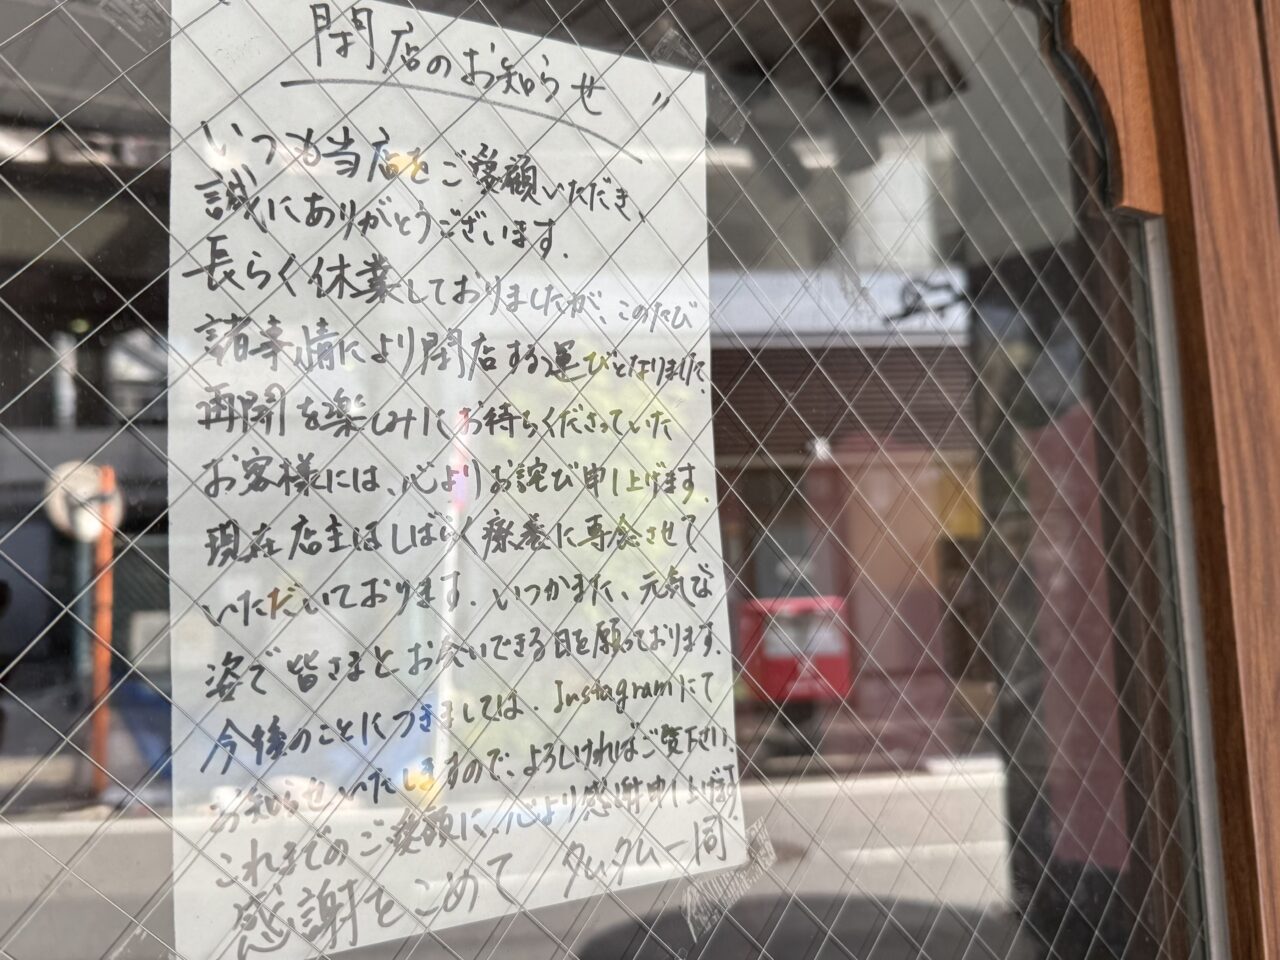 閉店のお知らせ
いつも当店をご愛顧いただき、
誠にありがとうございます.
長らく休業しておりましたが、このたび
諸事情により閉店する運びとなりました.
再開を楽しみにお待ちくださっていた
お客様には、心よりお詫び申し上げます.
現在店主はしばらく療養に専念させて
いただいております. いつかまた、元気な
姿で皆さまとお会いできる日を願っております.
今後のことにつきましては. Instagramにて
お知らせいたしますので、よろしければご覧下さい.
これまでのご愛顧に、心より感謝申し上げます
感謝をこめて タムタム一同